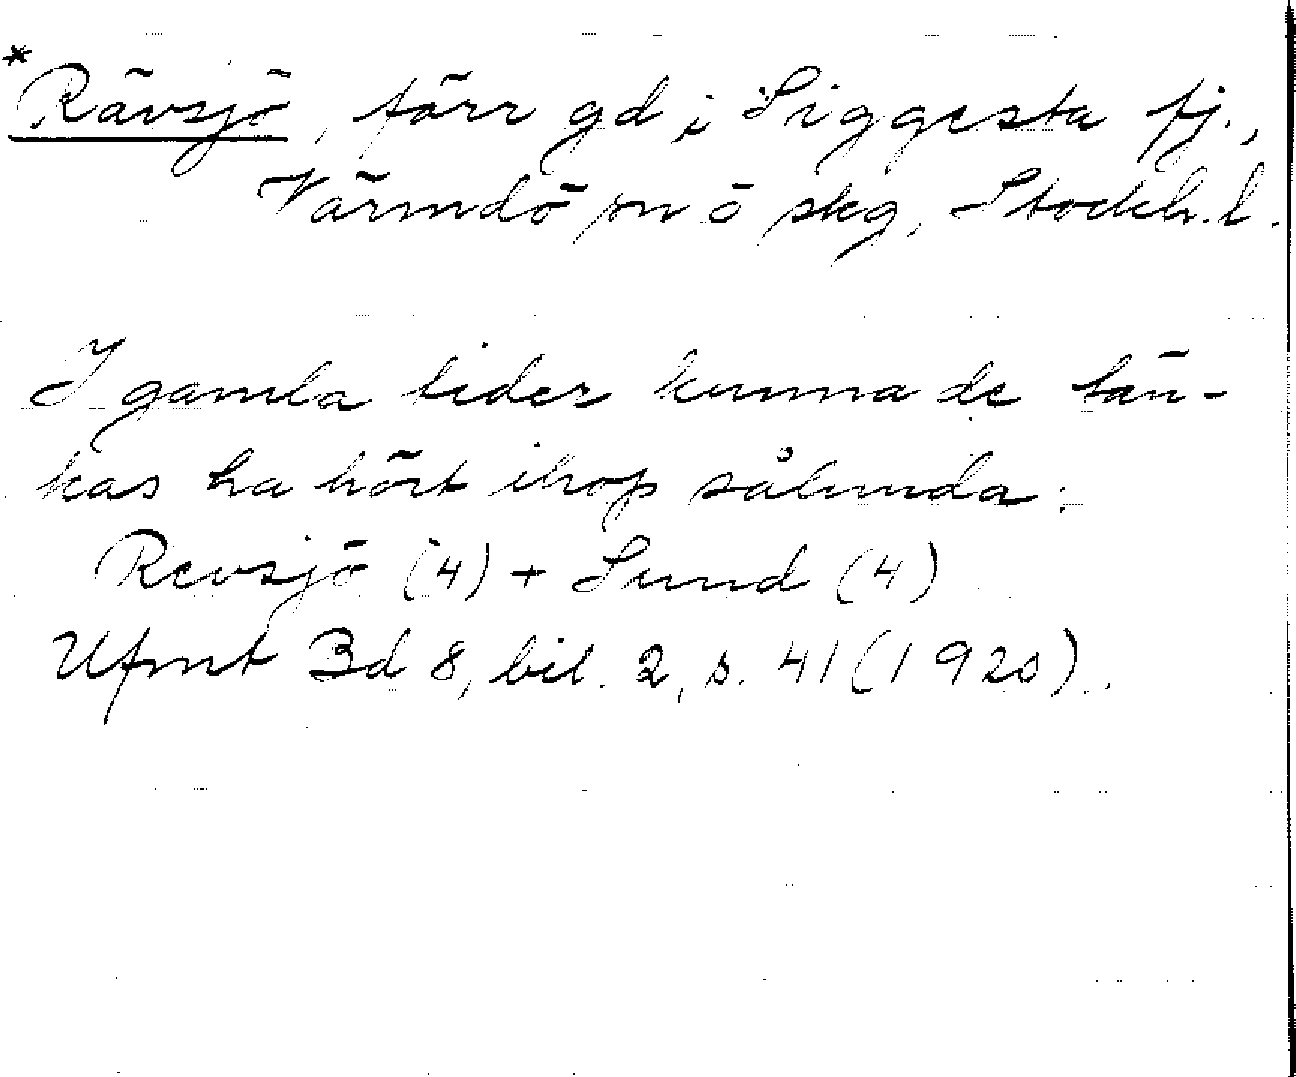 *Rävsjö, förr gd i Siggesta fj.,
Värmdö sn ö skg, Stockh. l.
I gamla tider kunna de tän-
kas ha hört ihop sålunda:
Revsjö (4) + Lund (4)
Ufmt Bd 8, bil. 2, s. 41 (1920).